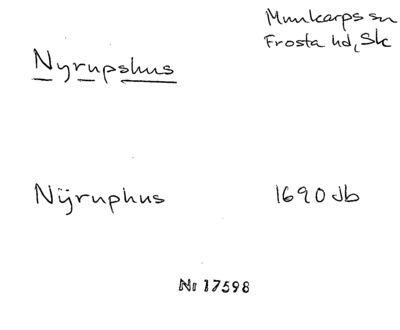 Munkarps sn
Frosta hd, Sk
Nyrupshus
Nÿruphus 1690 Jb
Nr 17598